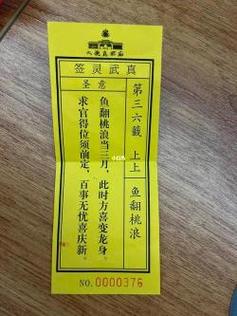 真武灵签
第三六籤 上上 鱼翻桃浪
圣意
鱼翻桃浪当三月，此时方喜变龙身，
求官得位须前定，百事无忧喜庆新。
NO.0000376
小红书